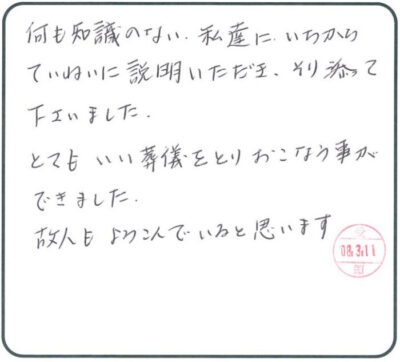 何も知識のない、私達に、いちから
ていねいに説明いただき、そり添って
下さいました。
とても いい葬儀をとり おこなう事が
できました。
故人も よろこんでいると思います
受
08.3.11